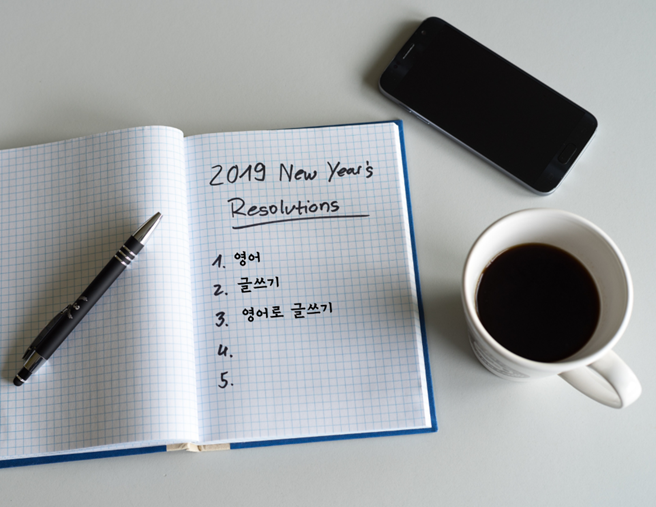 2019 New Year's
Resolutions
1. 영어
2. 글쓰기
3. 영어로 글쓰기
4.
5.